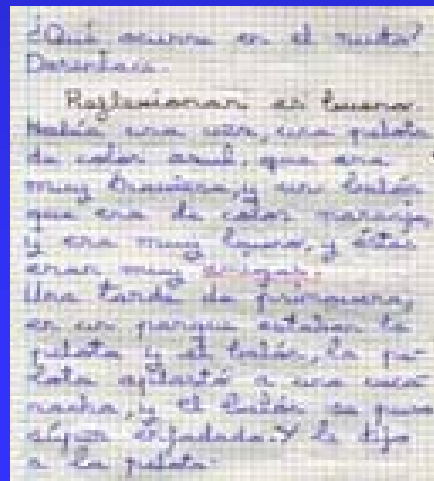 ¿Qué ocurre en el
Desenlace.
Reflexionar es bueno.
Había una vez, una pelota
de color azul, que era
muy traviesa, y un balón
que era de color naranja,
y era muy bueno, y éstos
eran muy amigos.
Una tarde de primavera,
en un parque estaban la
pelota y el balón, la pe-
lota aplastó a una cuca-
racha, y el balón se puso
súper enfadado. Y le dijo
a la pelota-